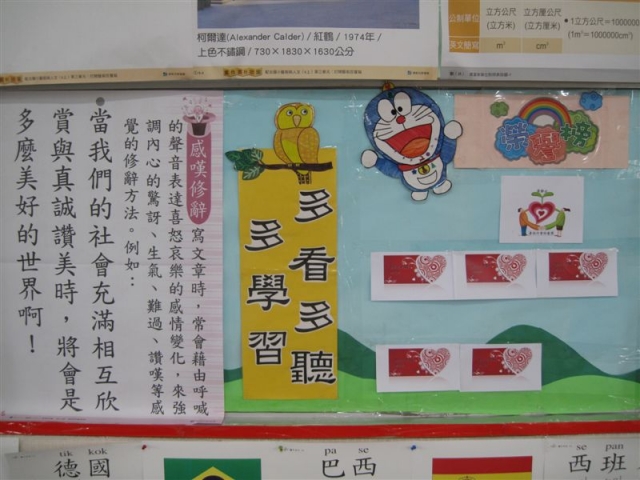 柯爾達(Alexander Calder) / 紅鶴 / 1974年 /
上色不鏽鋼 / 730×1830×1630公分
公制單位
立方公尺
(立方米)
立方公分
1立方公尺=1000000
(1m³=1000000cm³)
英文簡寫
m³
cm³
感嘆修辭
寫文章時，常會藉由呼喊
的聲音表達喜怒哀樂的感情變化，來強
調內心的驚訝、生氣、難過、讚嘆等感
覺的修辭方法。例如：
當我們的社會充滿相互欣
賞與真誠讚美時，將會是
多麼美好的世界啊！
多看多聽
多學習
榮譽榜
tik kok
德國
pa se
巴西
se pan
西班